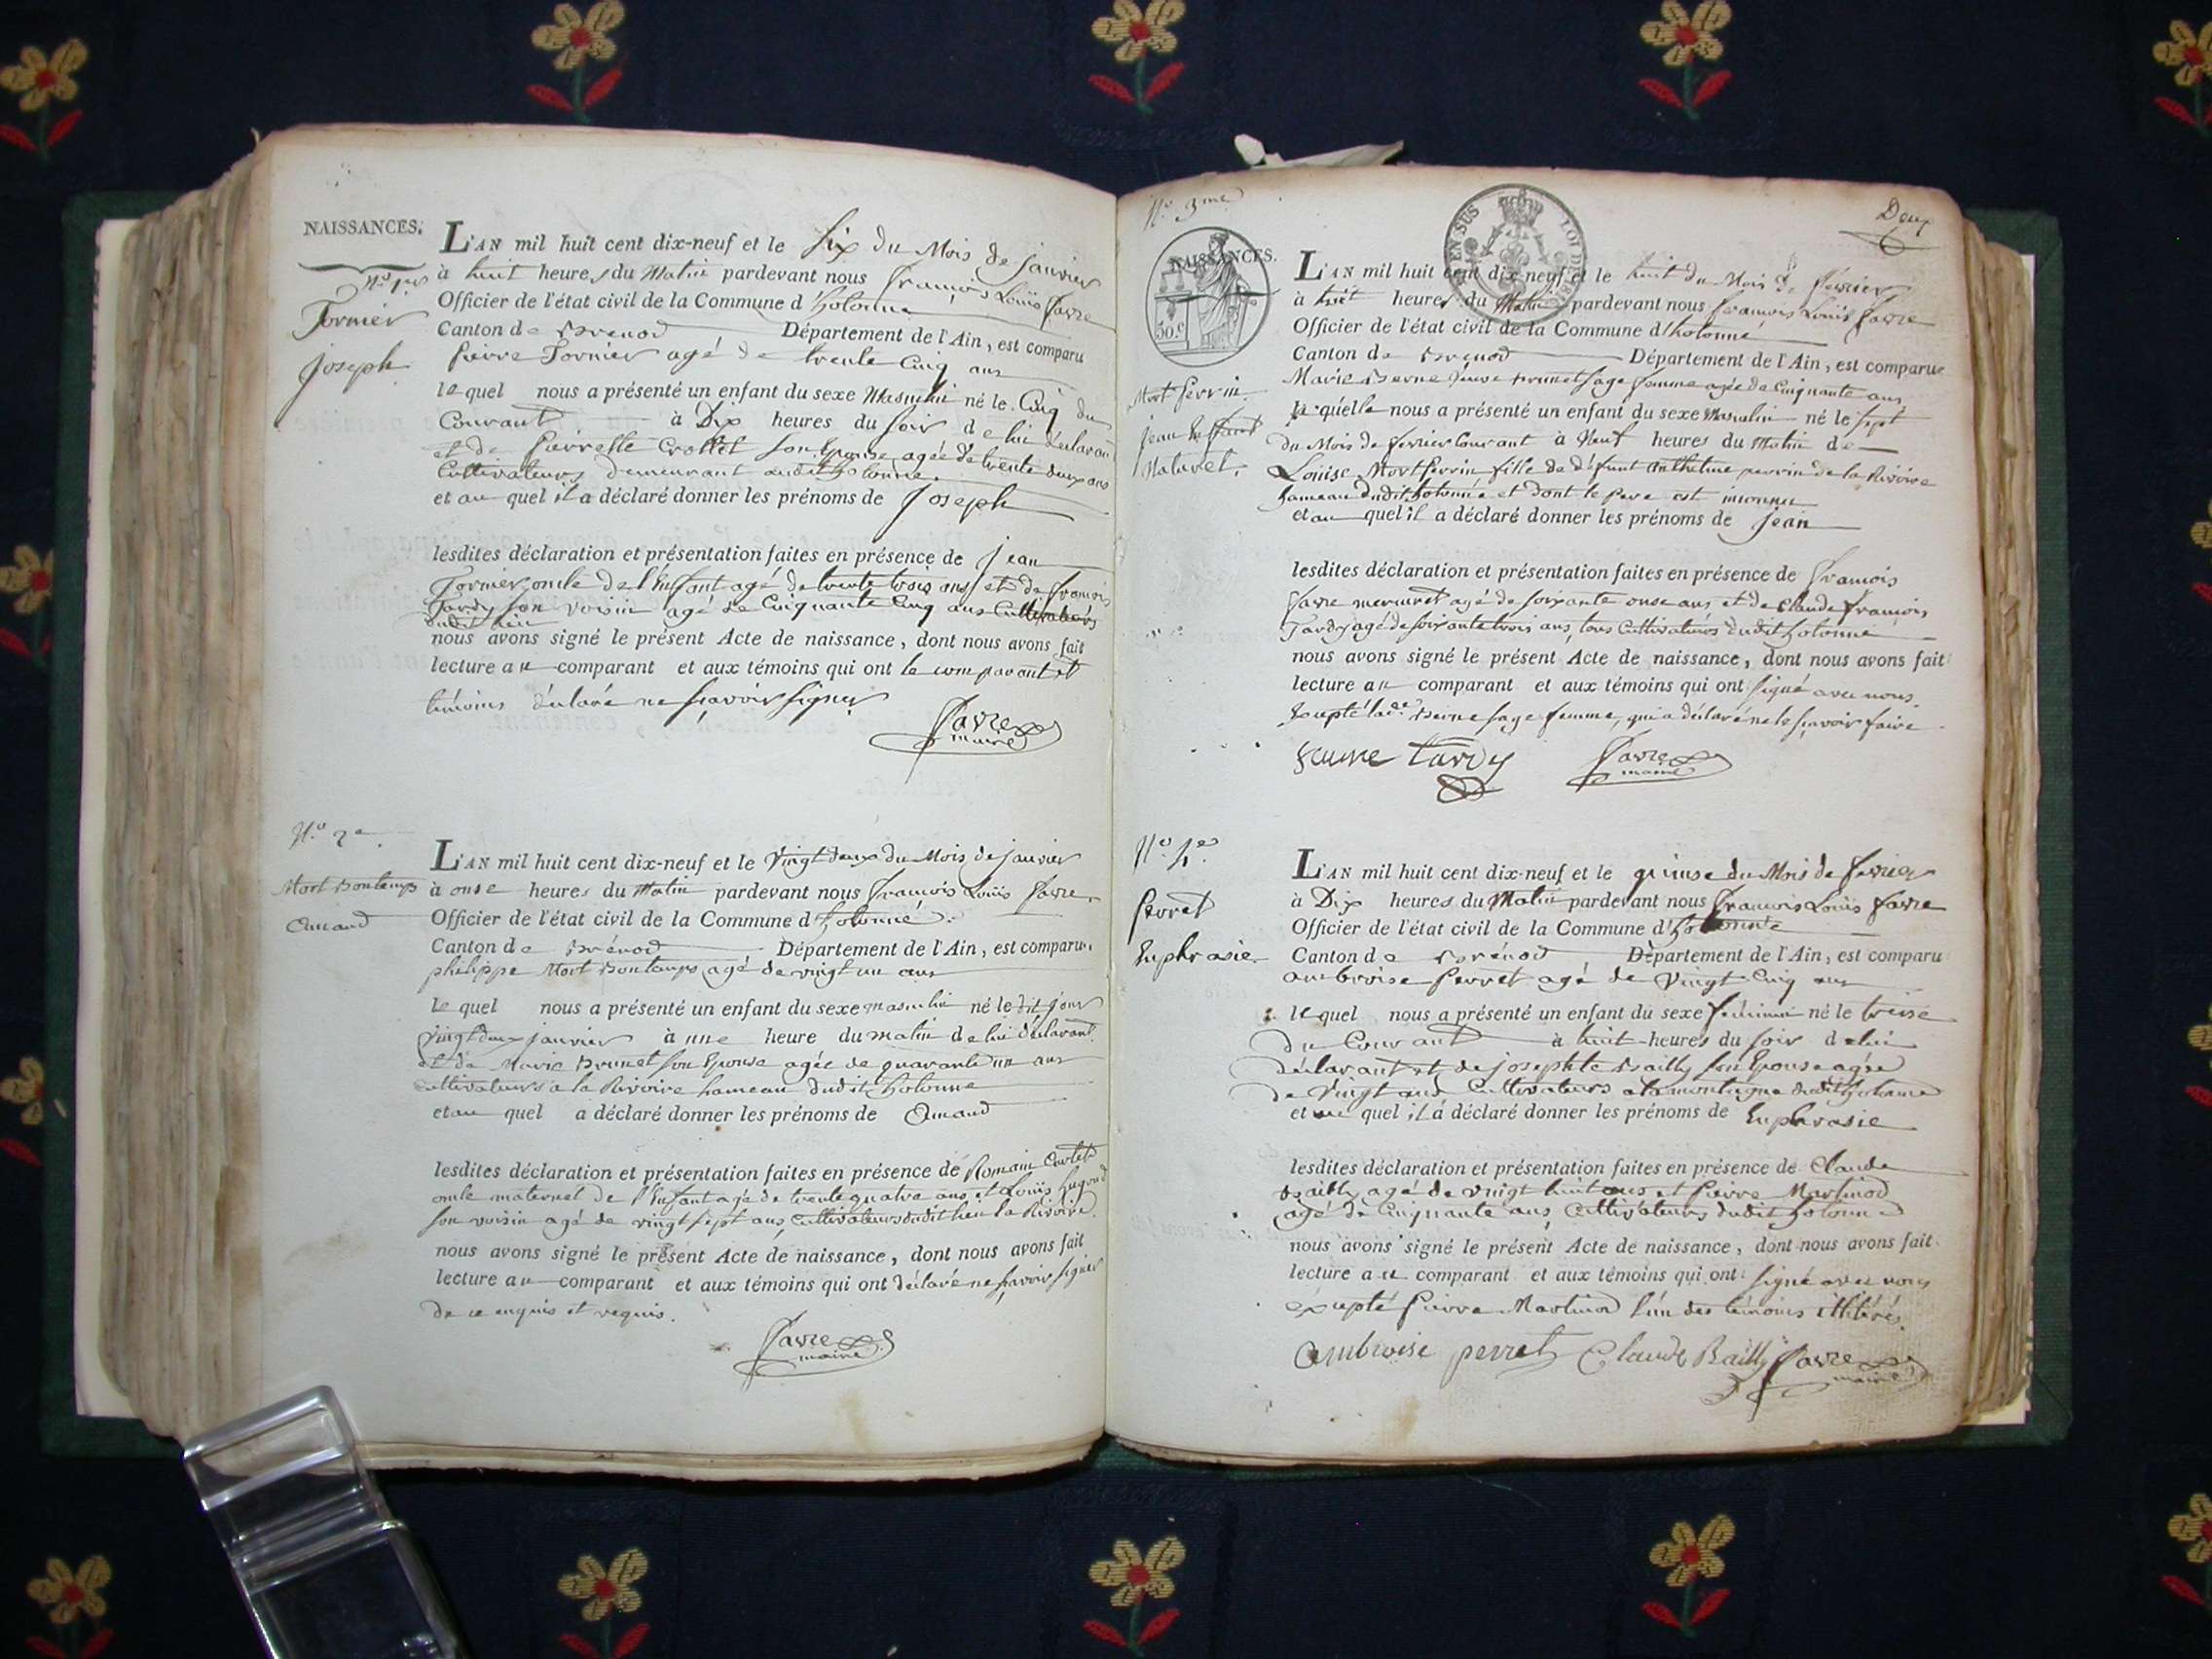 NAISSANCES.
N.o 1.er
Tornier
joseph
L'AN mil huit cent dix-neuf et le six du Mois de janvier
à huit heures du Matin pardevant nous françois Louis favre
Officier de l'état civil de la Commune d'hotonne
Canton de Brenod Département de l'Ain, est comparu
pierre Tornier agé de trente Cinq ans
le quel nous a présenté un enfant du sexe Masculin né le Cinq du
Courant à Dix heures du soir de lui déclarant
et de pierrette Crollet son Epouse agée de trente deux ans
Cultivateurs demeurant audit hotonne.
et au quel il a déclaré donner les prénoms de joseph
lesdites déclaration et présentation faites en présence de jean
Tornier oncle de l'Enfant agé de trente trois ans et de françois
Tardy son voisin agé de Cinquante Cinq ans Cultivateurs
dudit lieu
nous avons signé le présent Acte de naissance, dont nous avons fait
lecture au comparant et aux témoins qui ont le comparant et
témoins déclaré ne sçavoir signer
favre
maire
N.o 2e
Mort Bontemps
Amand
L'AN mil huit cent dix-neuf et le vingt deux du Mois de janvier
à onse heures du Matin pardevant nous françois Louis favre
Officier de l'état civil de la Commune d'hotonne.
Canton de Brénod Département de l'Ain, est comparu
philippe Mort Bontemps agé de vingt un ans
le quel nous a présenté un enfant du sexe masculin né le dit jour
vingt deux janvier à une heure du matin de lui déclarant
et de Marie Brunet son Epouse agée de quarante un ans
cultivateurs a la Rivoire hameau dudit hotonne
et au quel a déclaré donner les prénoms de Amand
lesdites déclaration et présentation faites en présence de Romain
oncle maternel de l'Enfant agé de trente quatre ans et Louis
son voisin agé de vingt sept ans, Cultivateurs dudit lieu la Rivoire.
nous avons signé le présent Acte de naissance, dont nous avons fait
lecture au comparant et aux témoins qui ont déclaré ne sçavoir signer
de ce enquis et requis.
favre
maire
N.o 3me
Deux
EN SUS LOI DE
NAISSANCES.
50.c
Mort perrin
jean Enfant
Naturel.
L'AN mil huit cent dix-neuf et le huit du Mois de février
à huit heures du Matin pardevant nous françois Louis favre
Officier de l'état civil de la Commune d'hotonne
Canton de Brenod Département de l'Ain, est comparue
Marie Berne veuve Brunet sage femme agée de Cinquante ans
la quelle nous a présenté un enfant du sexe Masculin né le sept
du Mois de fevrier Courant à Neuf heures du Matin de
Louise Mort perrin fille de défunt anthelme perrin de la Rivoire
hameau dudit hotonne et dont le pere est inconnu
et au quel il a déclaré donner les prénoms de jean
lesdites déclaration et présentation faites en présence de françois
favre mercuret agé de soixante onse ans et de Claude françois
Tardy agé de soixante trois ans, tous Cultivateurs dudit hotonne
nous avons signé le présent Acte de naissance, dont nous avons fait
lecture au comparant et aux témoins qui ont signé avec nous.
Excepté lade. Berne sage femme, qui a déclaré ne le sçavoir faire
tardy
favre
maire
N.o 4.e
perret
Euphrasie
L'AN mil huit cent dix-neuf et le quinse du Mois de fevrier
à Dix heures du Matin pardevant nous françois Louis favre
Officier de l'état civil de la Commune d'hotonne
Canton de Brénod Département de l'Ain, est comparu
ambroise perret agé de Vingt Cinq ans
le quel nous a présenté un enfant du sexe féminin né le treise
du Courant à huit heures du soir de lui
déclarant et de josephte Bailly son Epouse agée
de Vingt ans Cultivateurs a la montagne dudit hotonne
et au quel il a déclaré donner les prénoms de Euphrasie
lesdites déclaration et présentation faites en présence de Claude
Bailly agé de vingt huit ans et pierre Martinod
agé de Cinquante ans, Cultivateurs dudit hotonne
nous avons signé le présent Acte de naissance, dont nous avons fait
lecture au comparant et aux témoins qui ont signé avec nous
éxcepté pierre Martinod l'un des témoins illitéré.
ambroise perret Claude Bailly favre
maire